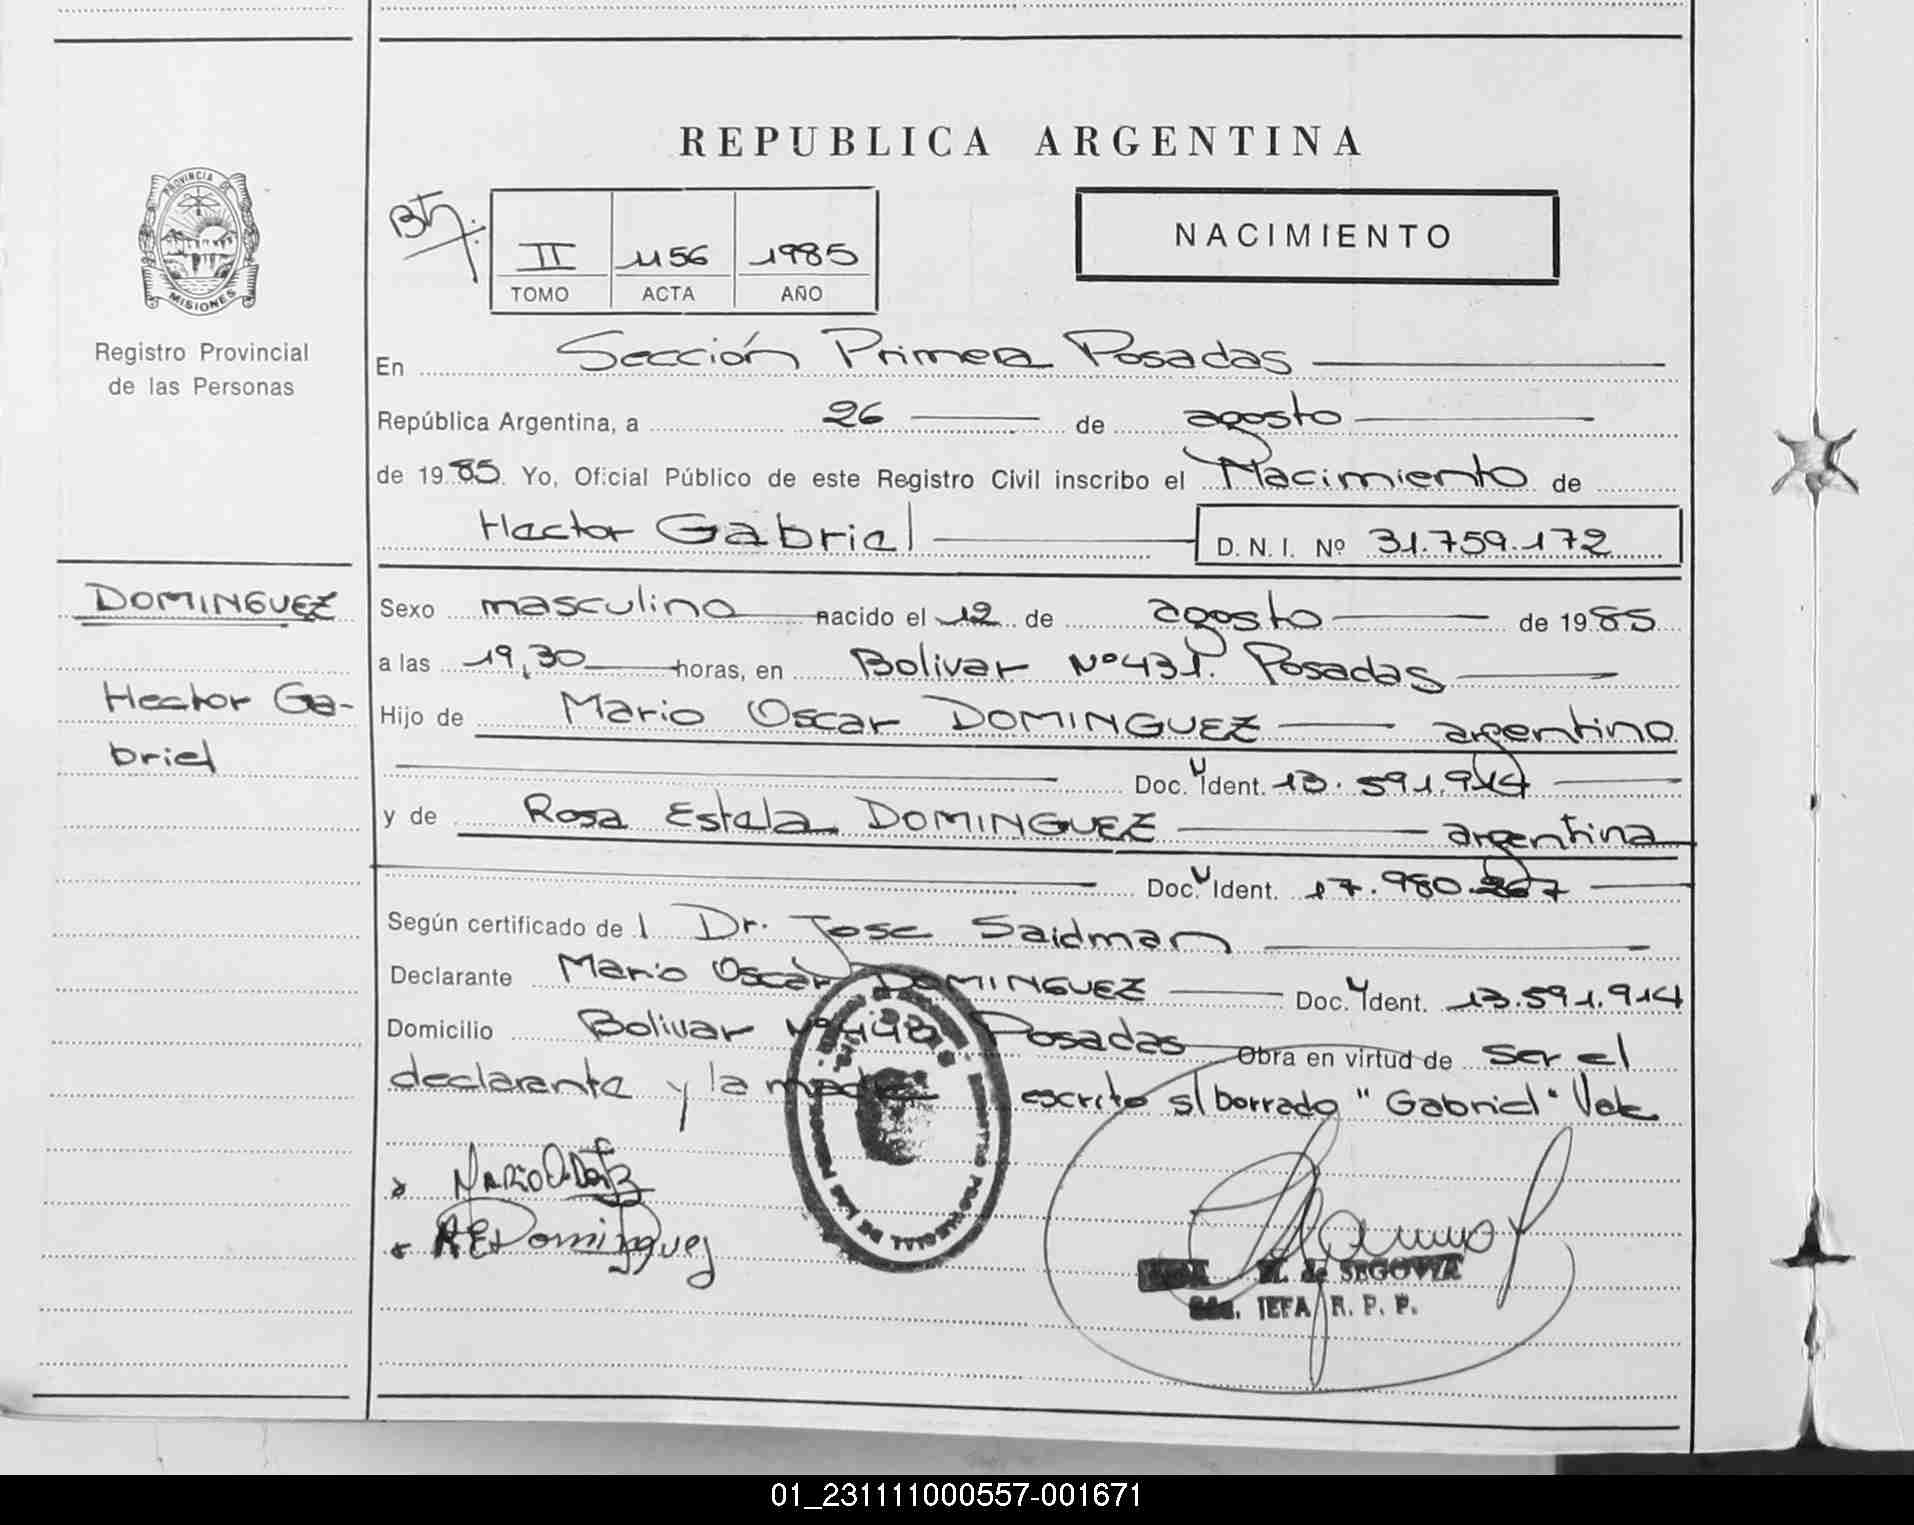 REPUBLICA ARGENTINA
PROVINCIA DE
MISIONES
Registro Provincial
de las Personas
II 1156 1985
TOMO ACTA AÑO
NACIMIENTO
En Sección Primera Posadas
República Argentina, a 26 de agosto
de 1985. Yo, Oficial Público de este Registro Civil inscribo el Nacimiento de
Hector Gabriel D. N. I. Nº 31.759.172
DOMINGUEZ
Hector Ga-
briel
Sexo masculino nacido el 12 de agosto de 1985
a las 19,30 horas, en Bolivar Nº 431. Posadas
Hijo de Mario Oscar DOMINGUEZ argentino
Doc. U Ident. 13.591.914
y de Rosa Estela DOMINGUEZ argentina
Doc. U Ident. 17.980.
Según certificado de l Dr. Jose Saidman
Declarante Mario Oscar DOMINGUEZ Doc. U Ident. 13.591.914
Domicilio Bolivar Nº Posadas Obra en virtud de ser el
declarante y la madre escrito s/borrado "Gabriel" Vale
R E Dominguez
M. de SEGOVIA
JEFA R. P. P.
01_231111000557-001671